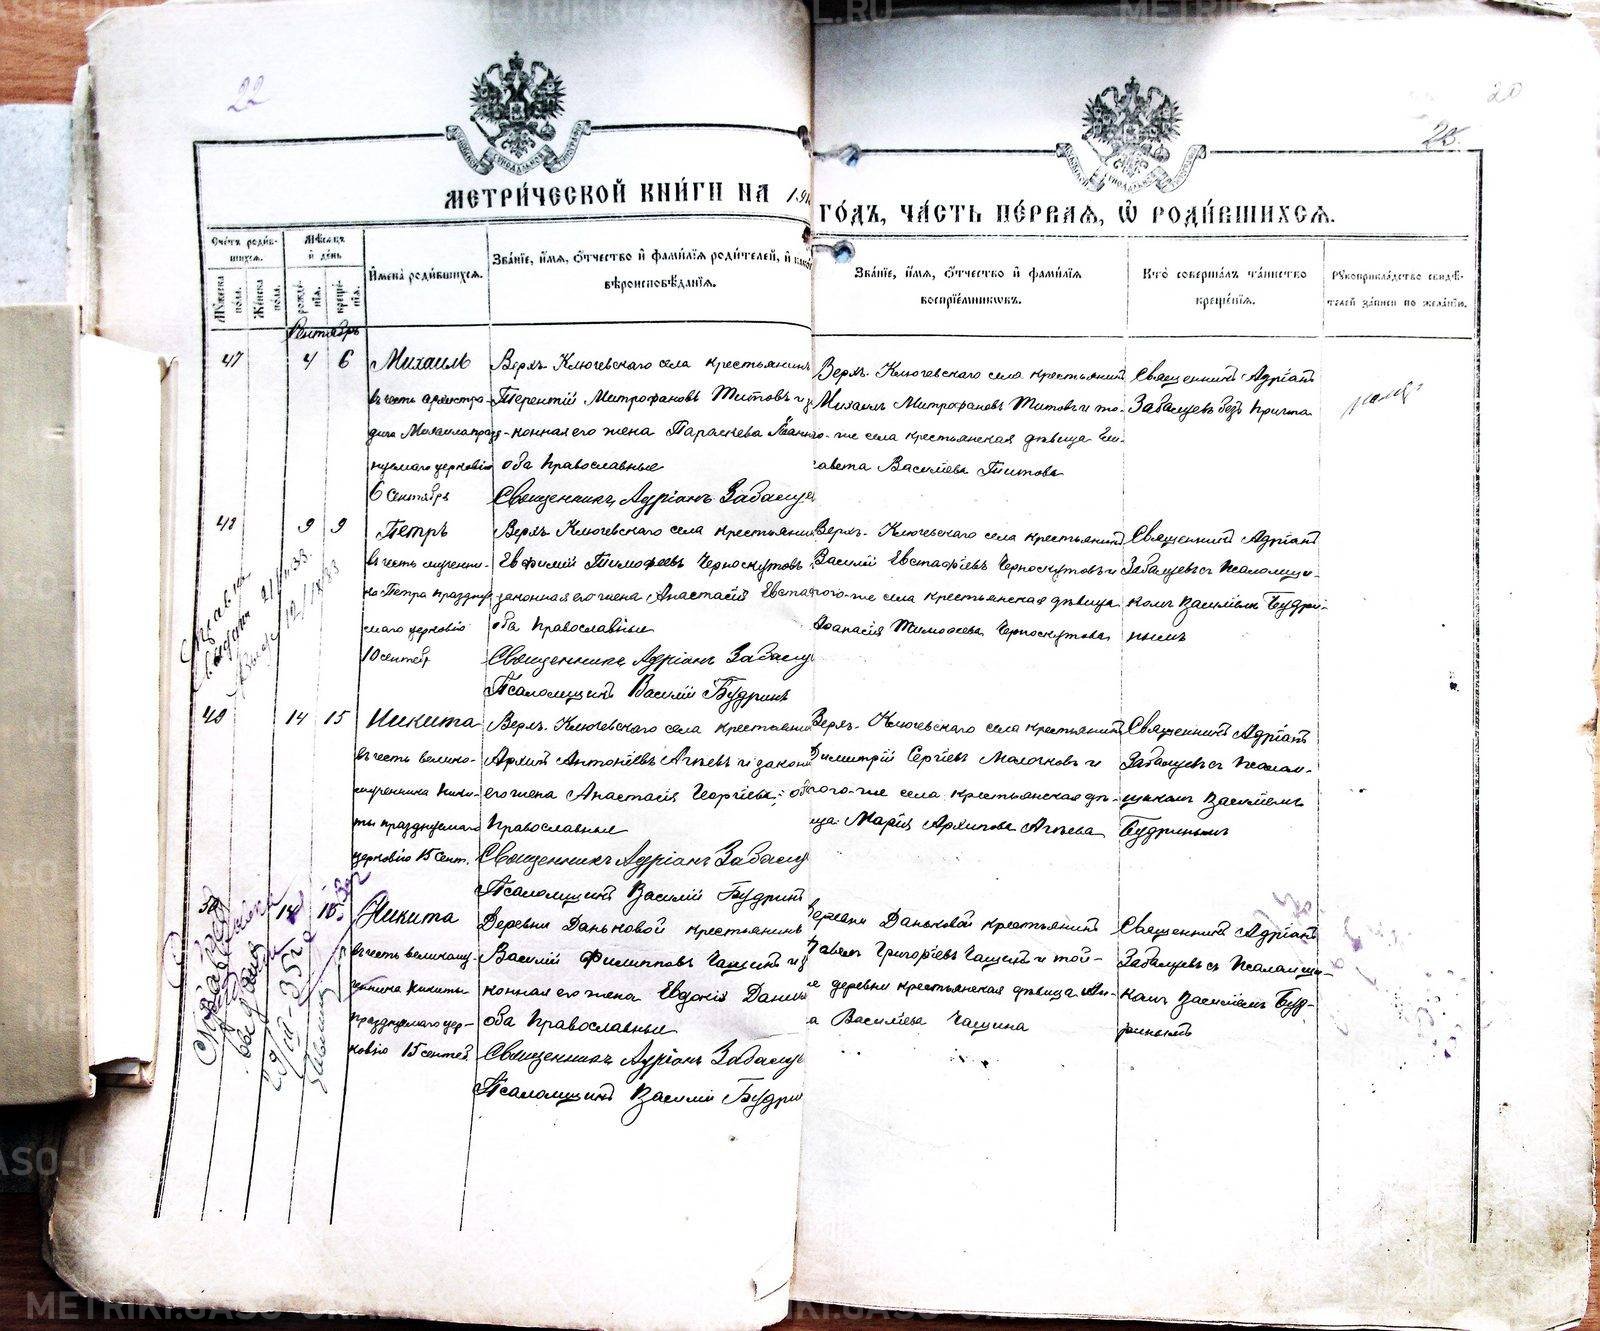 22
20
25.
МЕТРИ́ЧЕСКОЙ КНИ́ГИ НА 191
ГО́ДЪ, ЧА́СТЬ ПЕ́РВАЯ, Ѡ҆ РОДИ́ВШИХСЯ.
Сче́тъ роди́в-
шихся.
Мѣ́сяцъ
и҆ де́нь
Му́жеска по́ла.
Же́нска по́ла.
рожде́-
нїѧ.
креще́-
нїѧ.
И҆мена̀ роди́вшихся.
Зва́нїе, и҆́мя, ѻ҆́тчество и҆ фами́лїѧ роди́телей, и҆ како́
вѣроисповѣ́данїѧ.
Зва́нїе, и҆́мя, ѻ҆́тчество и҆ фами́лїѧ
воспрїе́мниковъ.
Кто̀ соверша́лъ та́инство
креще́нїѧ.
Рꙋкоприкла́дство свидѣ́-
телей за́писи по жела́нїю.
Сентябрь
47
4
6
Михаилъ
въ честь архистра-
тига Михаила празд-
нуемаго церковію
6 Сентября
Верхъ-Ключевскаго села крестьянинъ
Терентій Митрофановъ Титовъ и за
конная его жена Параскева Іоанно
оба Православные
Священникъ Адріанъ Забалуе
Верхъ-Ключевскаго села крестьянинъ
Михаилъ Митрофановъ Титовъ и то-
го-же села крестьянская дѣвица Ели-
савета Василіева Титова
Священникъ Адріанъ
Забалуевъ безъ причта
48
9
9
Петръ
въ честь мучени-
ка Петра праздну
емаго церковію
10 сентябр
Верхъ-Ключевскаго села крестьянин
Евфимій Тимофеевъ Черноскутовъ
законная его жена Анастасія Евста
оба Православные
Священникъ Адріанъ Забалу
Псаломщикъ Василій Будринъ
Верхъ-Ключевскаго села крестьянинъ
Василій Евстафіевъ Черноскутовъ и
того-же села крестьянская дѣвица
Афанасія Тимофеева Черноскутова
Священникъ Адріанъ
Забалуевъ съ Псаломщи-
комъ Василіемъ Будри-
нымъ
49
14
15
Никита
въ честь велико-
мученика Ники-
ты празднуемаго
церковію 15 Сент.
Верхъ-Ключевскаго села крестьянин
Архипъ Антоніевъ Агѣевъ и закон
его жена Анастасія Георгіева; об
Православные
Священникъ Адріанъ Забалу
Псаломщикъ Василій Будринъ
Верхъ-Ключевскаго села крестьянинъ
Димитрій Сергіевъ Молочковъ и
того-же села крестьянская дѣ-
ица Марія Архипова Агѣева
Священникъ Адріанъ
Забалуевъ съ Псалом-
щикомъ Василіемъ
Будринымъ
50
14
15
Никита
въ честь великому
ченика Никиты
празднуемаго цер-
ковію 15 сентяб
Деревни Даньковой крестьянинъ
Василій Филипповъ Чащинъ и з
конная его жена Евдокія Дани
оба Православные
Священникъ Адріанъ Забалу
Псаломщикъ Василій Будри
Деревни Даньковой крестьянинъ
Павелъ Григоріевъ Чащинъ и той-
е деревни крестьянская дѣвица Ан-
а Василіева Чащина
Священникъ Адріанъ
Забалуевъ съ Псаломщи-
комъ Василіемъ Буд-
ринымъ
Справка
METRIKI.GASO-URAL.RU